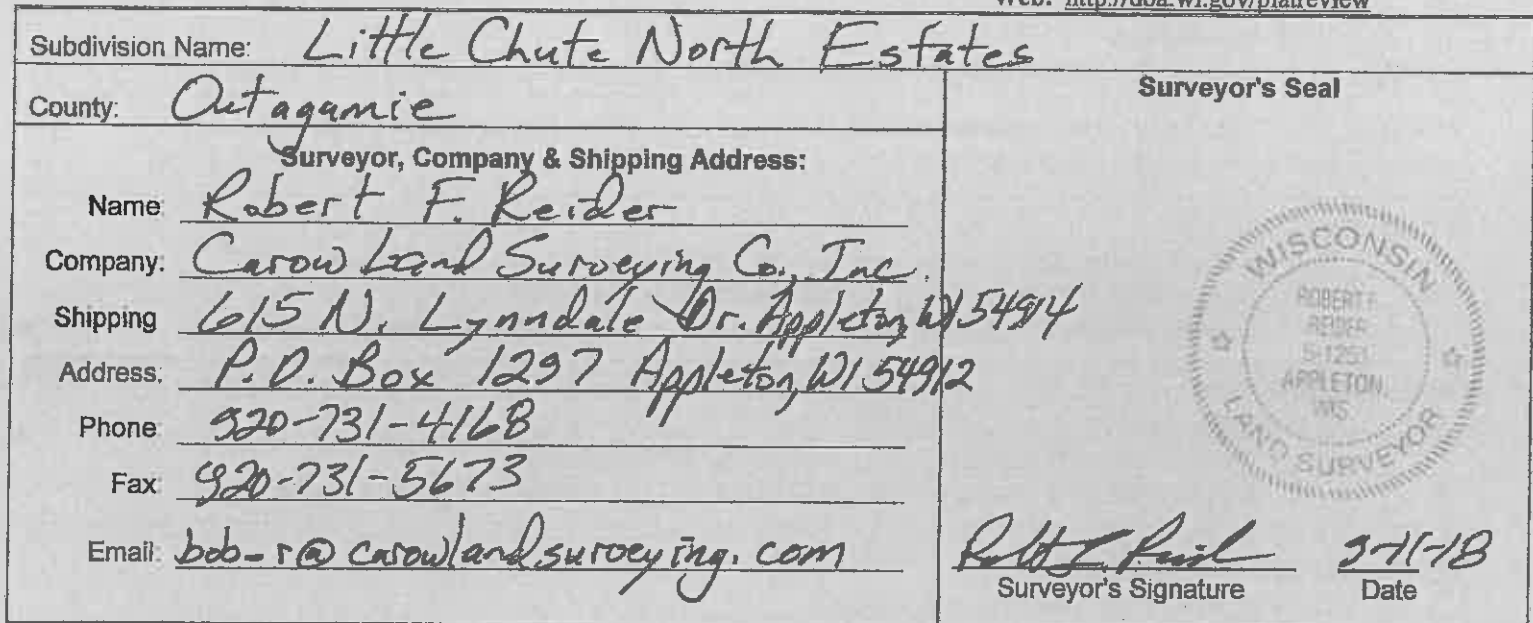 Web: http://doa.wi.gov/platreview
Subdivision Name: Little Chute North Estates
County: Outagamie
Surveyor's Seal
Surveyor, Company & Shipping Address:
Name Robert F. Reider
Company: Carow Land Surveying Co., Inc.
Shipping 615 N. Lynndale Dr. Appleton, WI 54914
Address. P.O. Box 1297 Appleton, WI 54912
Phone 920-731-4168
Fax 920-731-5673
Email: bob-r@carowlandsurveying.com
WISCONSIN
ROBERT F.
REIDER
S-1251
APPLETON,
WIS.
LAND SURVEYOR
Surveyor's Signature
Date